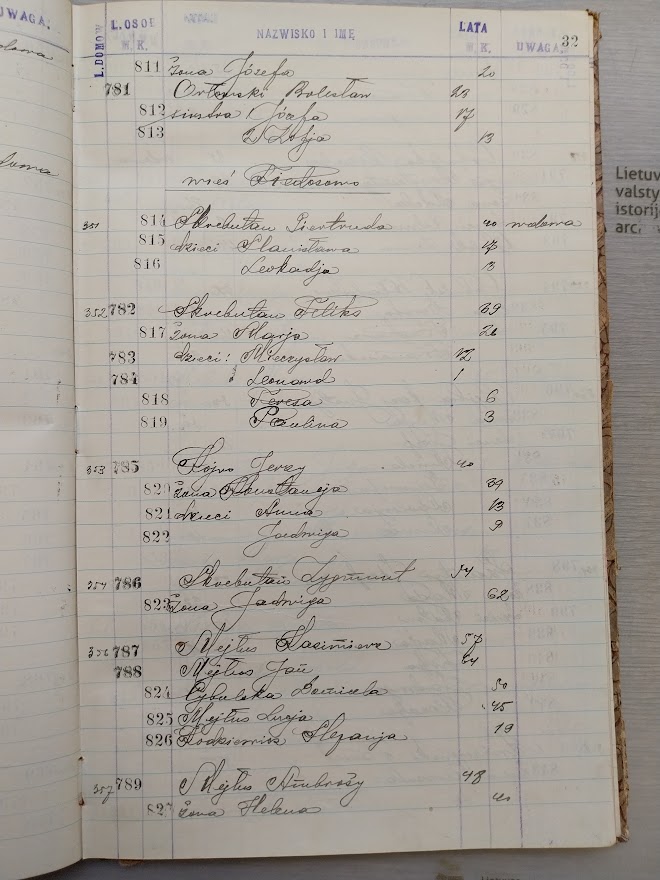 UWAGA.
L.DOMOW L.OSOB NAZWISKO I IMĘ LATA UWAGA 32
W. K. W. K.
811 żona Józefa 20
781 Orłowski Bolesław 23
812 siostra 1 Józefa 17
813 2 Zofja 13
wieś Fiedosowo
351 814 Skrebutan Giertruda 40 wdowa
815 dzieci Stanisława 17
816 Leokadja 3
352 782 Skrebutan Feliks 39
817 żona Marja 26
783 dzieci: Mieczysław 12
784 Leonard 1
818 Teresa 6
819 Paulina 3
353 785 Kojro Jerzy 40
820 żona Konstancja 39
821 dzieci Anna 13
822 Jadwiga 9
354 786 Skrebutan Zygmunt 54
823 żona Jadwiga 62
356 787 Mejłus Kazimierz 57
788 Mejłus Jan 64
824 Cybulska Domicela 50
825 Mejłus Łucja 45
826 Stefanja 19
357 789 Mejłus Ambroży 48
827 żona Helena
Lietuv
valsty
istorij
arc